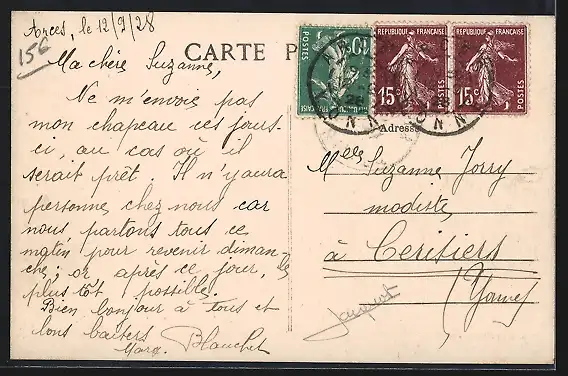 Arces, le 12/9/28
156
CARTE P
Ma chère Suzanne,
Ne m'envoie pas
mon chapeau ces jours-
ci, au cas où il
serait prêt. Il n'y aura
personne chez nous car
nous partons tous ce
matin pour revenir diman-
che; or, après ce jour, le
plus tôt possible.
Bien bonjour à tous et
bons baisers
Marg. Blanchet
POSTES
REPUBLIQUE FRANÇAISE
15c
POSTES
REPUBLIQUE FRANÇAISE
15c
POSTES
Adresse
Melle Suzanne Jorry
modiste
à Cerisiers
(Yonne)